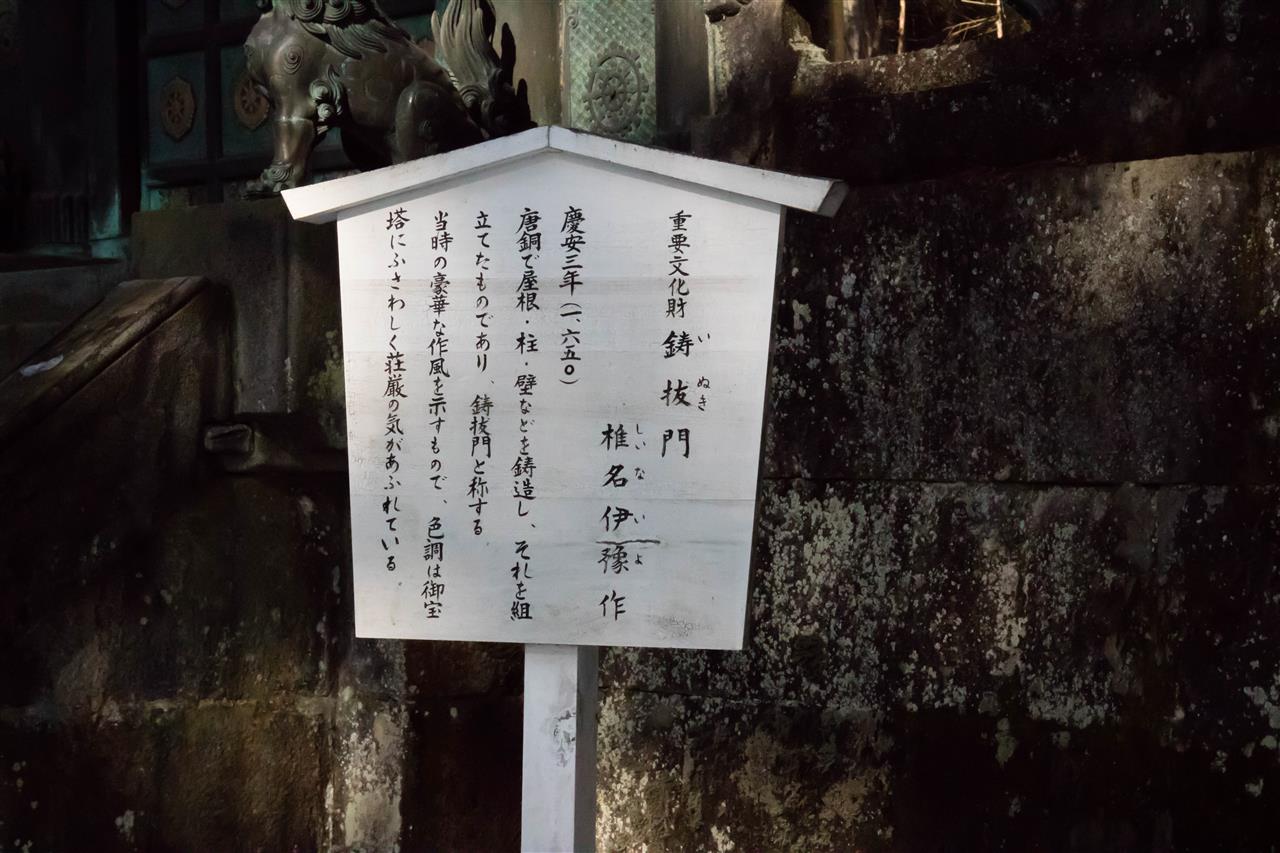 重要文化財 鋳抜門
いぬき
椎名伊豫作
しいないよ
慶安三年（一、六五〇）
唐銅で屋根・柱・壁などを鋳造し、それを組
立てたものであり、鋳抜門と称する
当時の豪華な作風を示すもので、色調は御宝
塔にふさわしく荘厳の気があふれている。